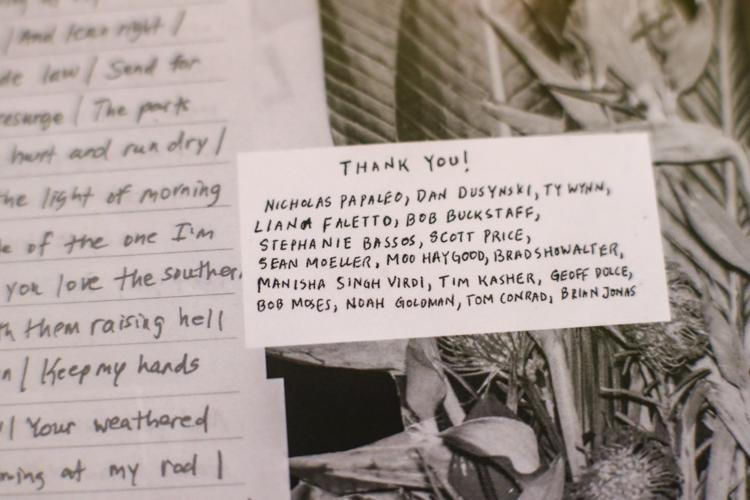 And lean right /
de law / Send for
resurge / The parts
hurt and run dry /
the light of morning
of the one I'm
you love the souther
them raising hell
/ Keep my hands
/ Your weathered
at my rod /
THANK YOU!
NICHOLAS PAPALEO, DAN DUSYNSKI, TY WYNN,
LIANA FALETTO, BOB BUCKSTAFF,
STEPHANIE BASSOS, SCOTT PRICE,
SEAN MOELLER, MOO HAYGOOD, BRAD SHOWALTER,
MANISHA SINGH VIRDI, TIM KASHER, GEOFF DOLCE,
BOB MOSES, NOAH GOLDMAN, TOM CONRAD, BRIAN JONAS